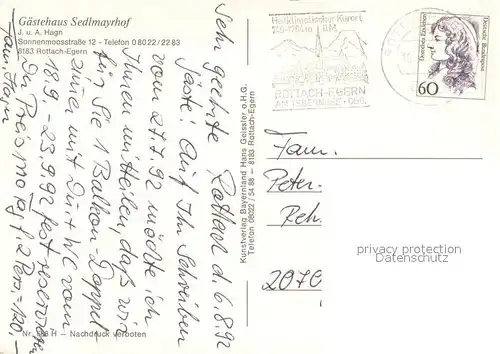 Gästehaus Sedlmayrhof
J. u. A. Hagn
Sonnenmoosstraße 12 - Telefon 08022/2283
8183 Rottach-Egern
Rottach d. 6.8.92
Sehr geehrte
Gäste! Auf Ihr Schreiben
vom 27.7.92 möchte ich
Ihnen mitteilen daß wir
für Sie 1 Balkon Doppel
zimmer mit Du + WC vom
18.9 - 23.9.92 fest reserviert
Der Preis pro Tag f. 2 Pers = 120.-
Fam. Hagn
Nr. H — Nachdruck verboten
Kunstverlag Bayernland Hans Geissler o.H.G.
Telefon 08022/54 88 — 8183 Rottach-Egern
Heilklimatischer Kurort
740-1764 m ü.M.
ROTTACH-EGERN
AM TEGERNSEE · OBB.
Dorothea Erxleben
Deutsche Bundespost
60
Fam.
Peter
Reh
2070
privacy protection
@ANSICHTSKARTEN-CENTER.DE